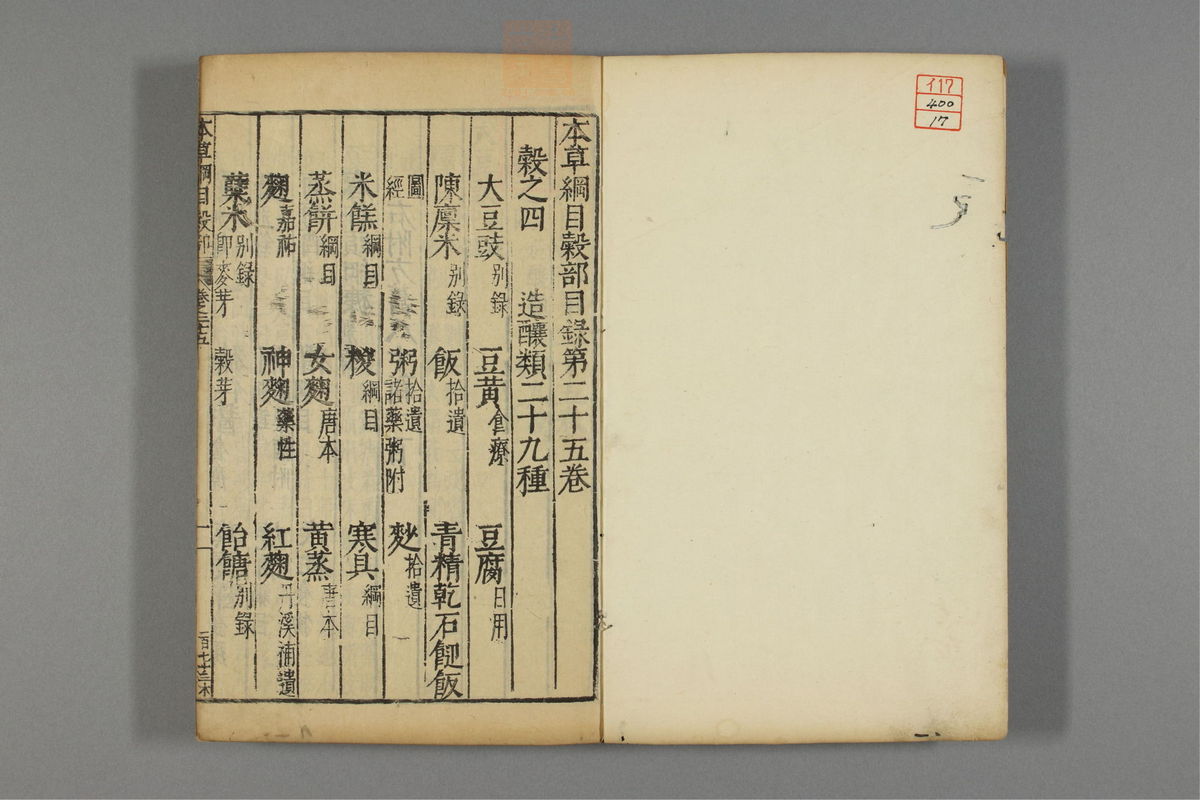 イ17
400
17
本草綱目穀部目録第二十五卷
穀之四 造釀類二十九種
大豆豉别錄 豆黄食療 豆腐日用
陳廩米别錄 飯拾遺 青精乾石䭀飯
圖經 粥拾遺諸藥粥附 麨拾遺
米餻綱目 糉綱目 寒具綱目
蒸餅綱目 女麴唐本 黄蒸唐本
麴嘉祐 神麴藥性 紅麴丹溪補遺
糵米别錄即麥芽穀芽 飴餹别錄
本草綱目穀部 卷之二十五